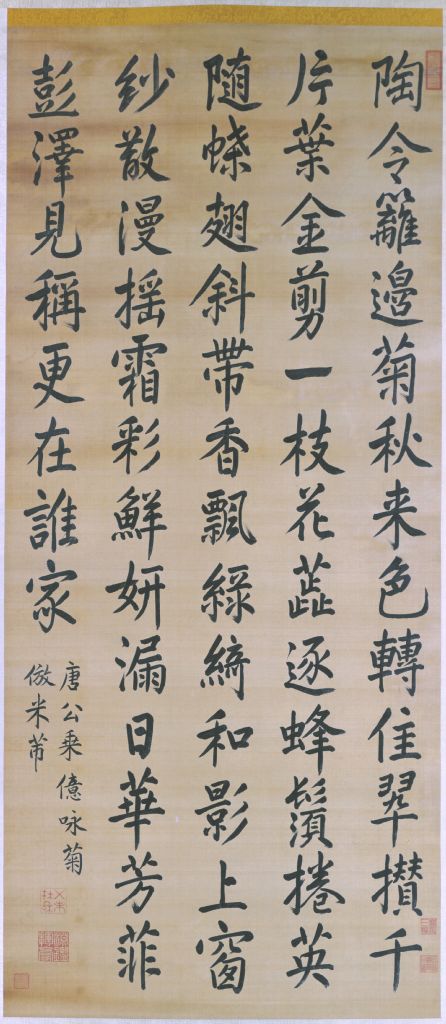 陶令籬邊菊秋来色轉佳翠攢千
片葉金剪一枝花蕋逐蜂鬚捲英
隨蝶翅斜帶香飄緑綺和影上窗
紗散漫揺霜彩鮮妍漏日華芳菲
彭澤見稱更在誰家
唐公乘億咏菊
倣米芾